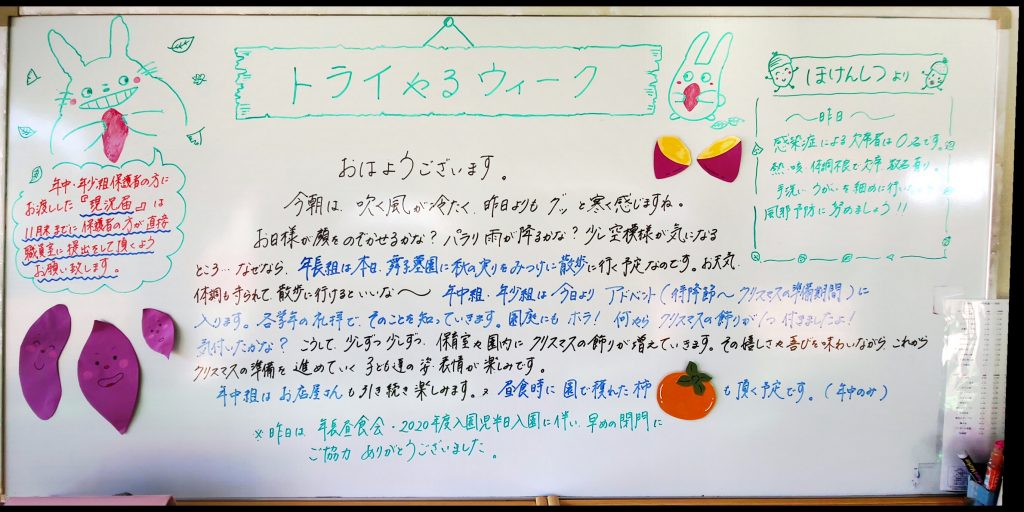 トライやるウィーク
おはようございます。
今朝は、吹く風が冷たく、昨日よりも グッと寒く感じますね。
お日様が顔をのぞかせるかな？パラリ雨が降るかな？少し空模様が気になる
ところ…なぜなら、年長組は本日、舞子墓園に秋の実りをみつけに散歩に行く予定なのです。お天気、
体調も守られて、散歩に行けるといいな〜 年中組・年少組は今日より アドベント（待降節〜クリスマスの準備期間）に
入ります。各学年の礼拝で、そのことを知っていきます。園庭にも ホラ！ 何やら クリスマスの飾りが1つ 付きましたよ！
気付いたかな？ こうして 少しずつ 少しずつ、保育室や園内に クリスマスの飾りが増えていきます。その嬉しさや喜びを味わいながら これから
クリスマスの準備を 進めていく 子ども達の姿、表情が楽しみです。
年中組は お店屋さんも引き続き楽しみます。× 昼食時に 園で穫れた柿 も 頂く予定です。（年中のみ）
※昨日は、年長昼食会・2020年度入園児半日入園に伴い、早めの閉門に
ご協力 ありがとうございました。
年中・年少組保護者の方に
お渡しした『現況届』は
11月末までに保護者の方が直接
職員室に提出をして頂くよう
お願い致します。
ほけんしつより
〜昨日〜
感染症による欠席者は0名です。
熱・咳・体調不良で欠席 数名有り。
手洗い うがいを細めに行い
風邪予防に努めましょう!!